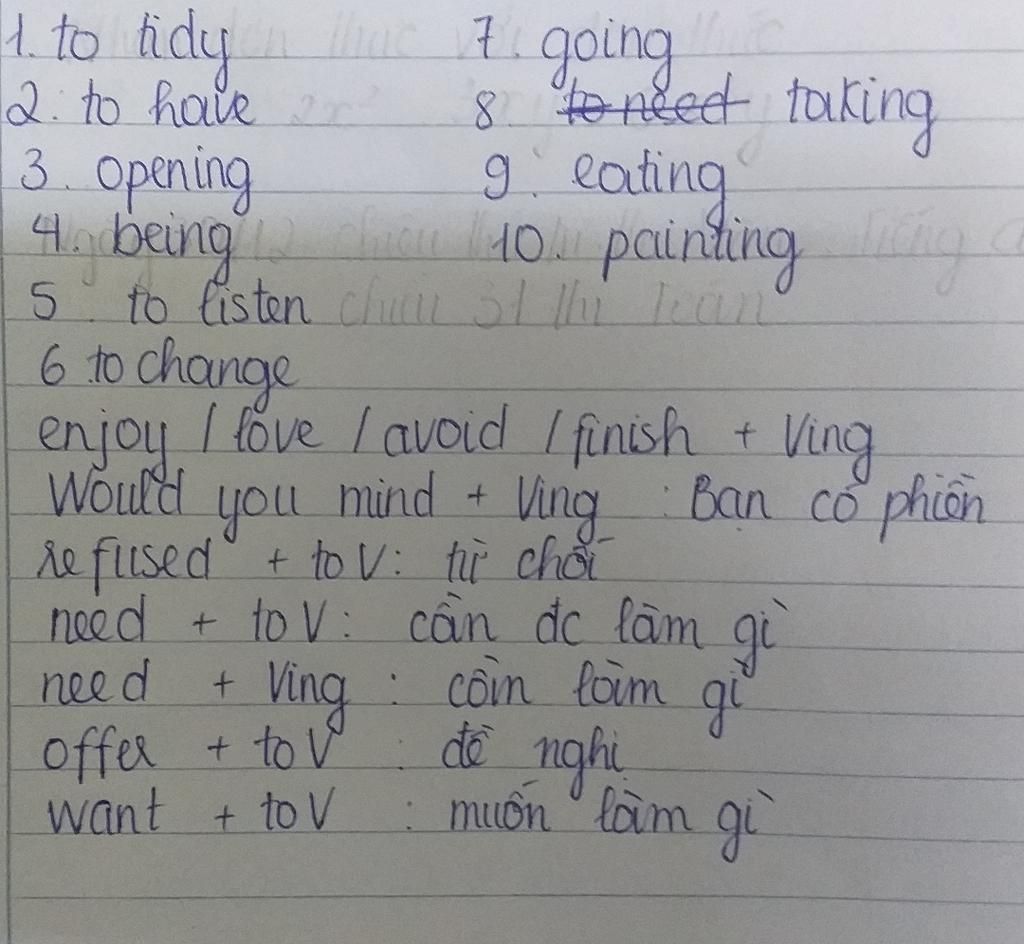 1. to tidy 7. going
2. to have 8. to need taking
3. opening 9. eating
4. being 10. painting
5. to listen
6 to change
enjoy / love / avoid / finish + Ving
Would you mind + Ving : Bạn có phiền
refused + to V : từ chối
need + to V : cần đc làm gì
need + Ving : cần làm gì
offer + to V : đề nghị
want + to V : muốn làm gì